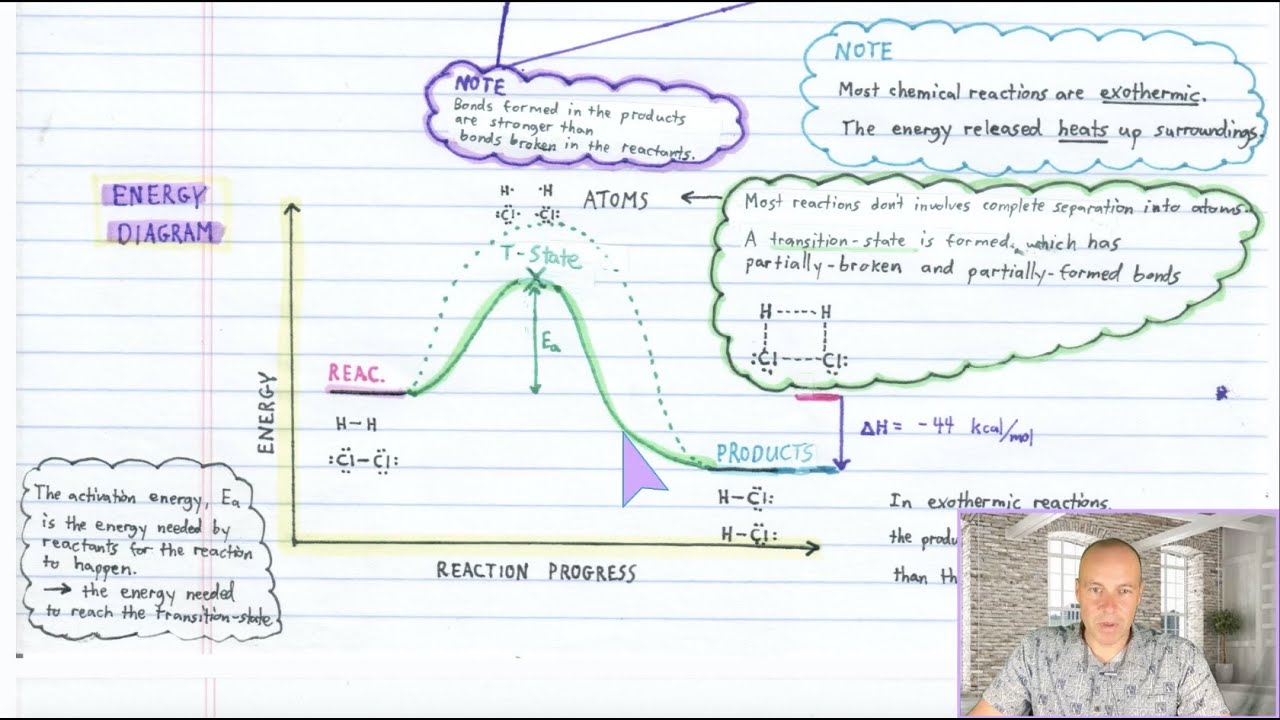 NOTE
Bonds formed in the products
are stronger than
bonds broken in the reactants.
NOTE
Most chemical reactions are exothermic.
The energy released heats up surroundings.
ENERGY
DIAGRAM
H· ·H
:Cl· ·Cl:
ATOMS
Most reactions don't involves complete separation into atoms.
A transition-state is formed, which has
partially-broken and partially-formed bonds
H----H
:Cl---Cl:
T-State
Ea
REAC.
H-H
:Cl-Cl:
ENERGY
PRODUCTS
H-Cl:
H-Cl:
ΔH = -44 kcal/mol
REACTION PROGRESS
The activation energy, Ea
is the energy needed by
reactants for the reaction
to happen.
→ the energy needed
to reach the transition-state
In exothermic reactions,
the produ
than th